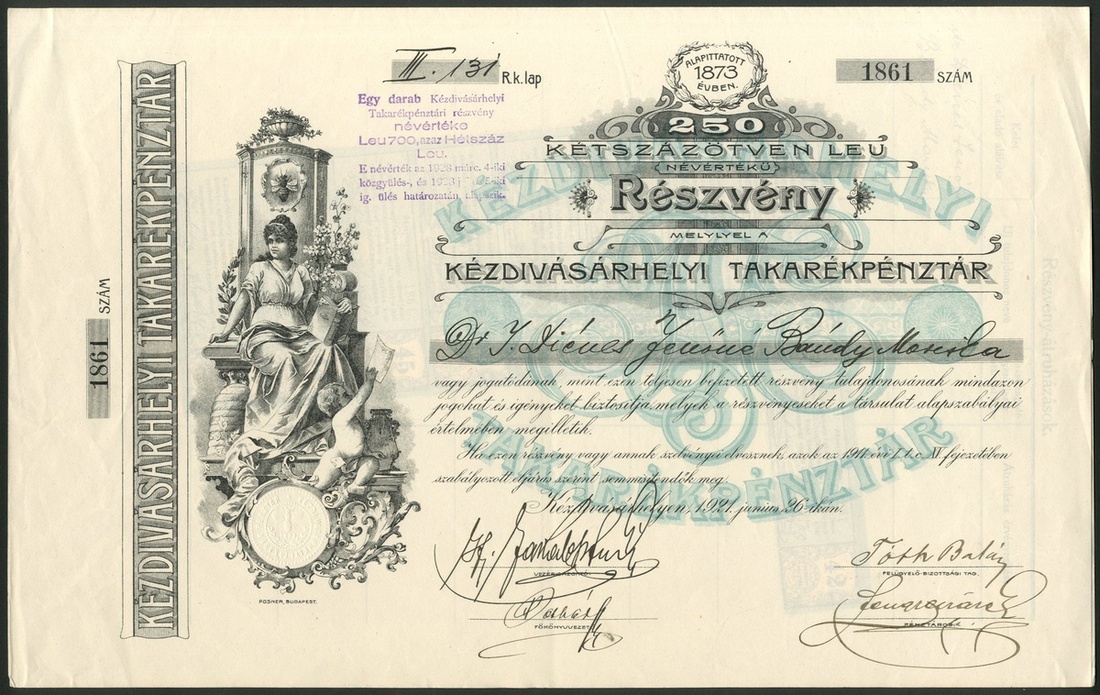 KÉZDIVÁSÁRHELYI TAKARÉKPÉNZTÁR
1861 SZÁM
III. 131 R.k.lap
Egy darab Kézdivásárhelyi
Takarékpénztári részvény
névértéke
Leu 700, azaz Hétszáz
Leu.
E névérték az 1923 márc. 4-iki
közgyülés-, és 1923
ig. ülés határozatán alapszik.
ALAPITTATOTT
1873
ÉVBEN.
1861 SZÁM
250
KÉTSZÁZÖTVEN LEU
(NÉVÉRTÉKŰ)
Részvény
MELYLYEL A
KÉZDIVÁSÁRHELYI TAKARÉKPÉNZTÁR
Dr I. Diénes Jenőné Bándy Mariska
vagy jogutódának, mint ezen teljesen befizetett részvény tulajdonosának mindazon
jogokat és igényeket biztosítja, melyek a részvényeseket a társulat alapszabályai
értelmében megilletik.
Ha ezen részvény vagy annak szelvényei elvesznek, azok az 1911. évi I. t. c. XI. fejezetében
szabályozott eljárás szerint semmisítendők meg.
Kézdivásárhelyen, 1921. junius 26-ikán.
VEZÉRIGAZGATÓ.
Tóth Balázs
FELÜGYELŐ-BIZOTTSÁGI TAG.
FŐKÖNYVVEZETŐ
PÉNZTÁROS.
POSNER, BUDAPEST.
KÉZDIVÁSÁRHELYI
TAKARÉKPÉNZTÁR